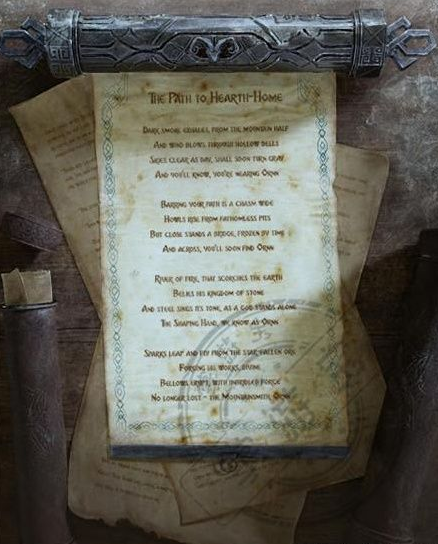 The Path to Hearth-Home
Dark smoke exhales, from the mountain half
And who blows, through hollow dells
Skies clear as day, shall soon turn gray
And you'll know, you're nearing Ornn
Barring your path is a chasm wide
Howls rise from fathomless pits
But close stands a bridge, frozen by time
And across, you'll soon find Ornn
River of fire, that scorches the earth
Belies his kingdom of stone
And steel sings its tone, as a god stands alone
The Shaping Hand, we know as Ornn
Sparks leap and fly from the star fallen ore
Forging his works, divine
Bellows erupt, with unbridled forge
No longer lost – the Mountainsmith, Ornn